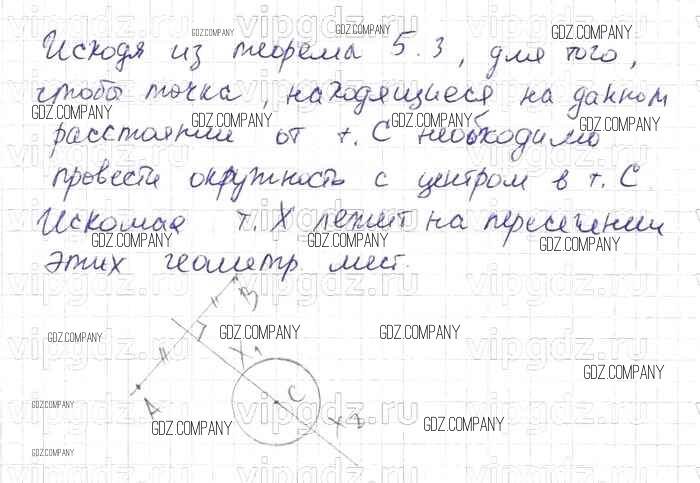 Исходя из теорема 5.3, для того,
чтобы точка, находящиеся на данном
расстоянии от т. С необходимо
провести окружность с центром в т. С
Искомая т. X лежит на пересечении
этих геометр мест.
B
X₁
C
A
X₂
GDZ.COMPANY
vipgdz.ru